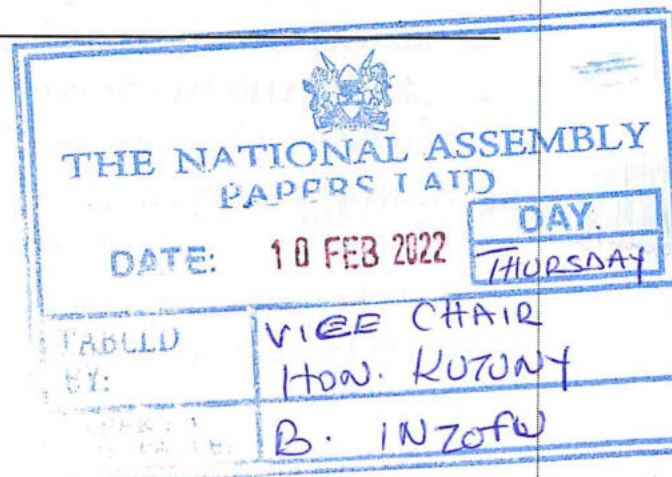 THE NATIONAL ASSEMBLY
PAPERS LAID
DATE: 10 FEB 2022 DAY.
THURSDAY
TABLED BY: VICE CHAIR
HON. KUTUNY
B. INZOFU